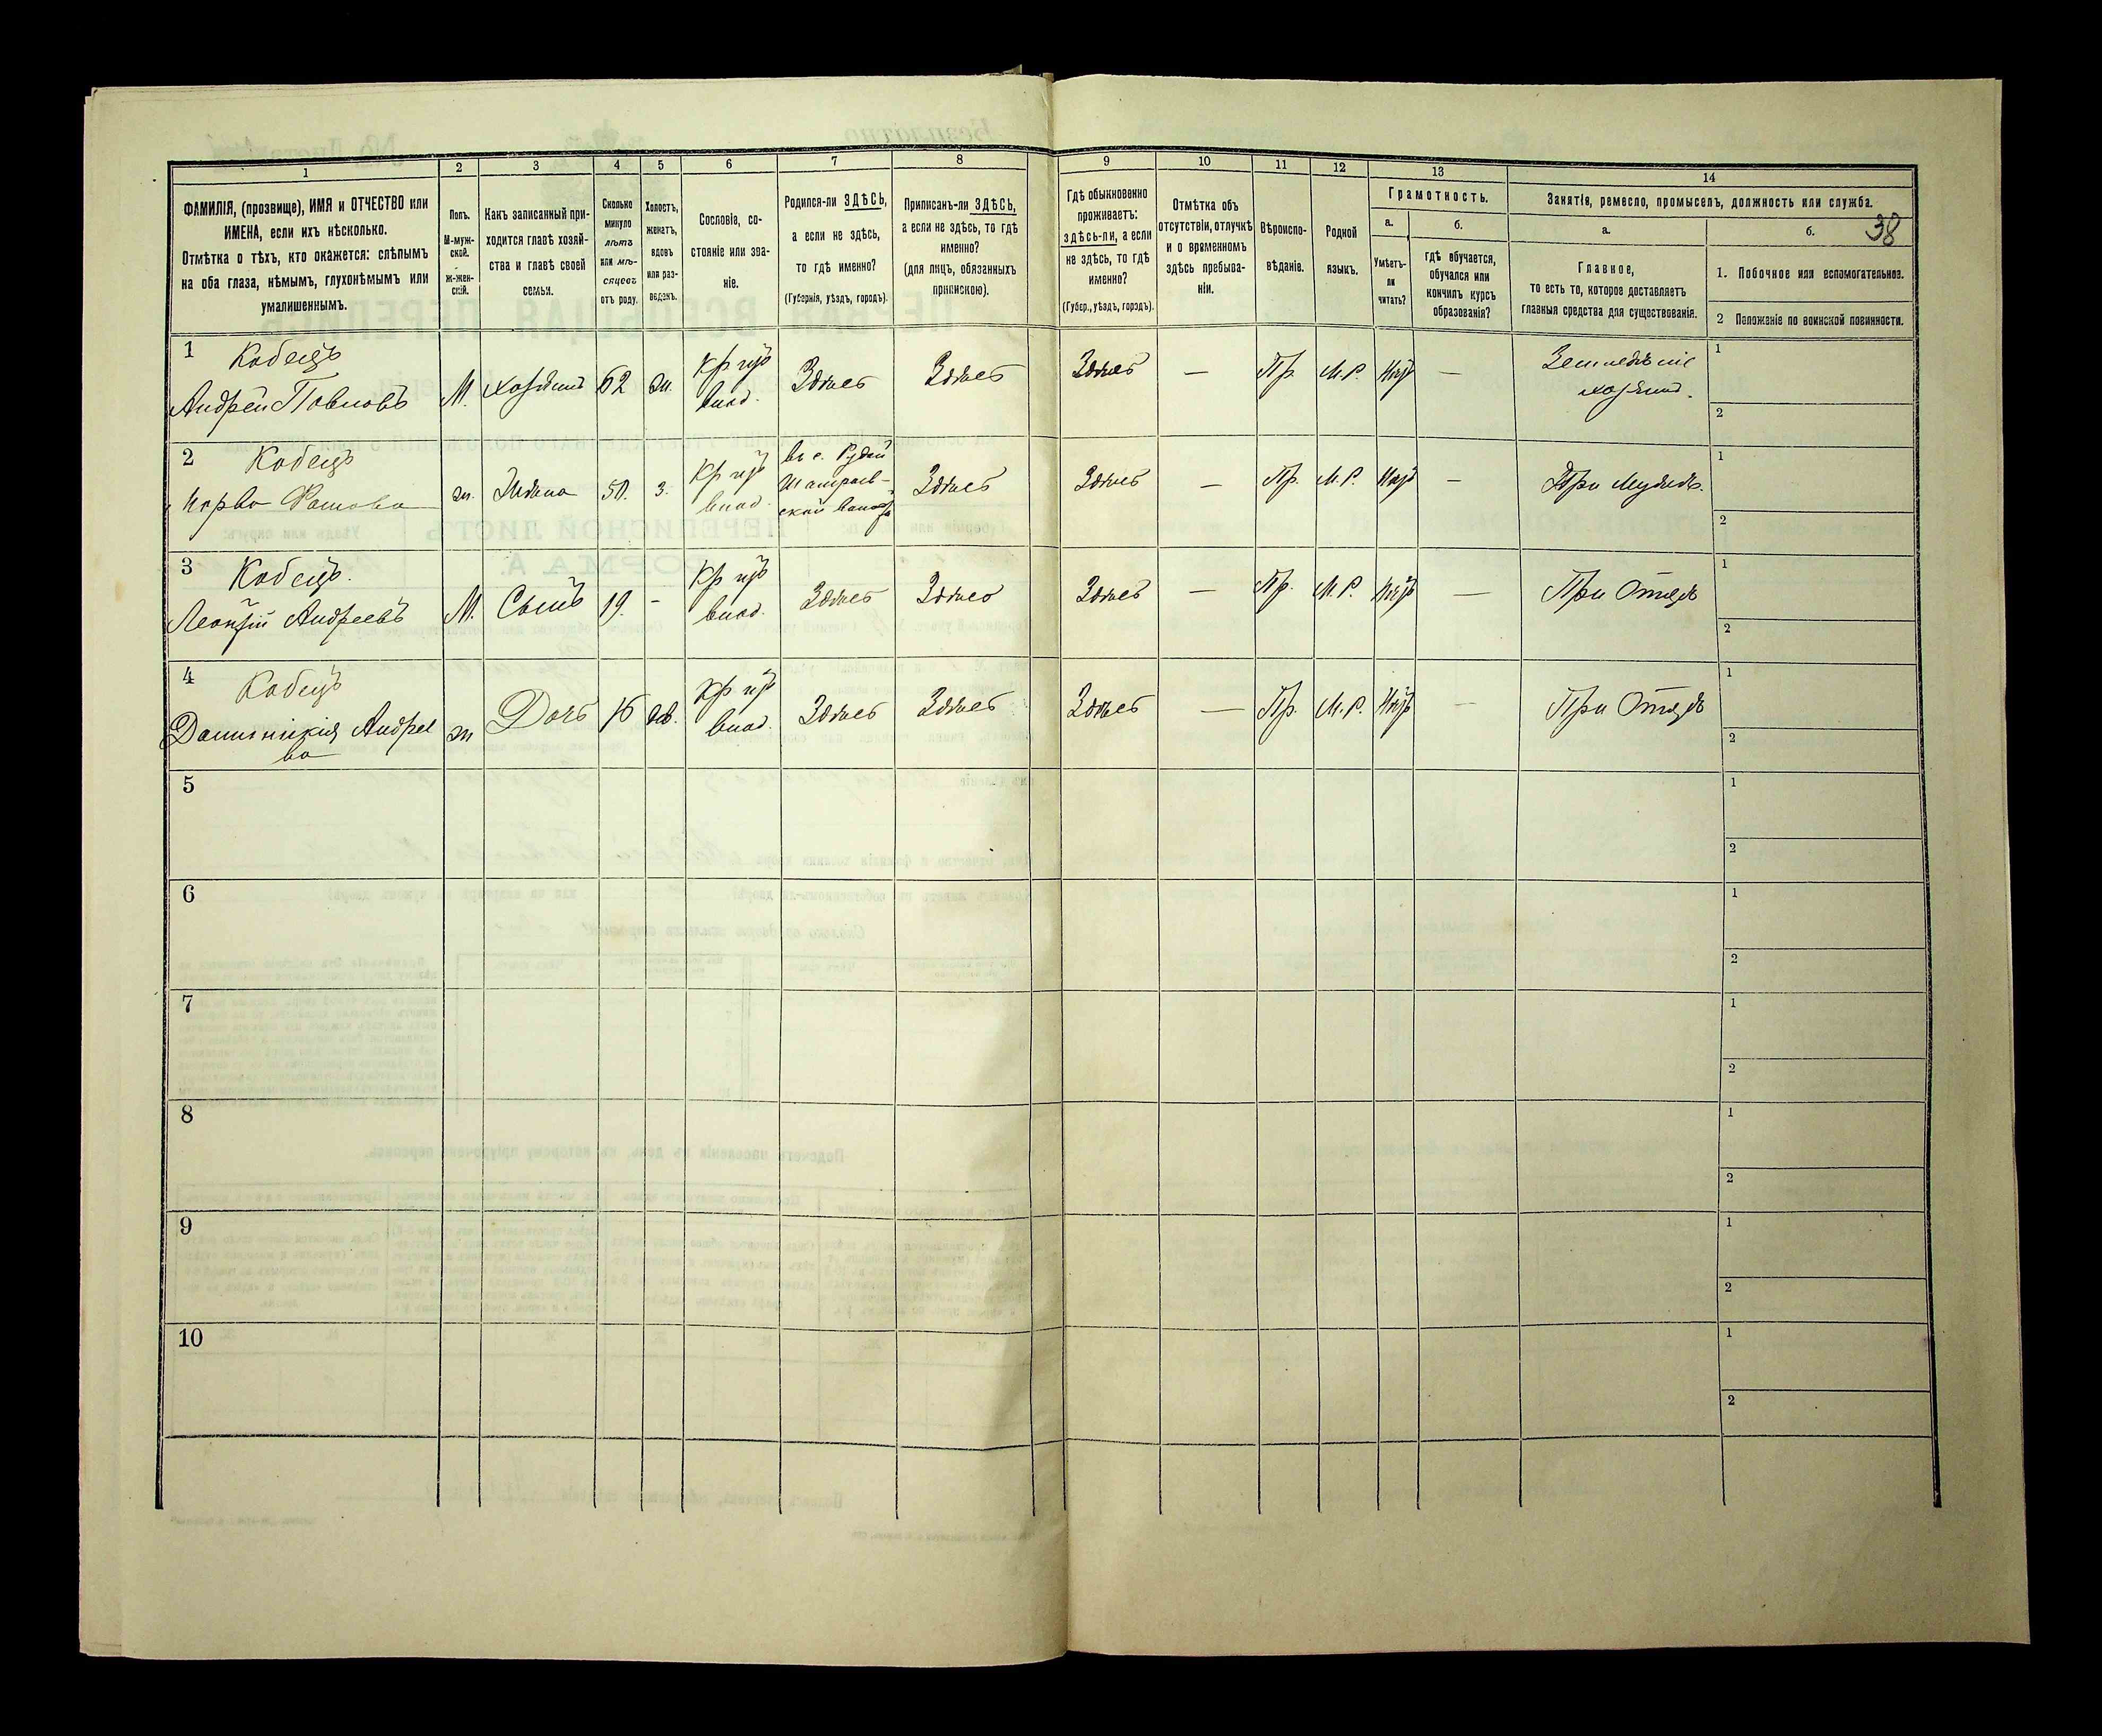 38
1 2 3 4 5 6 7 8 9 10 11 12 13 14
ФАМИЛІЯ, (прозвище), ИМЯ и ОТЧЕСТВО или
ИМЕНА, если ихъ нѣсколько.
Отмѣтка о тѣхъ, кто окажется: слѣпымъ
на оба глаза, нѣмымъ, глухонѣмымъ или
умалишеннымъ.
Полъ.
М-муж-
ской.
Ж-жен-
скій.
Какъ записанный при-
ходится главѣ хозяй-
ства и главѣ своей
семьи.
Сколько
минуло
лѣтъ
или мѣ-
сяцевъ
отъ роду.
Холостъ,
женатъ,
вдовъ
или раз-
веденъ.
Сословіе, со-
стояніе или зва-
ніе.
Родился-ли ЗДѢСЬ,
а если не здѣсь,
то гдѣ именно?
(Губернія, уѣздъ, городъ).
Приписанъ-ли ЗДѢСЬ,
а если не здѣсь, то гдѣ
именно?
(для лицъ, обязанныхъ
припискою).
Гдѣ обыкновенно
проживаетъ:
здѣсь-ли, а если
не здѣсь, то гдѣ
именно?
(Губер., уѣздъ, городъ).
Отмѣтка объ
отсутствіи, отлучкѣ
и о временномъ
здѣсь пребыва-
ніи.
Вѣроиспо-
вѣданіе.
Родной
языкъ.
Грамотность.
а.
Умѣетъ-
ли
читать?
б.
гдѣ обучается,
обучался или
кончилъ курсъ
образованія?
Занятіе, ремесло, промыселъ, должность или служба.
а.
Главное,
то есть то, которое доставляетъ
главныя средства для существованія.
б.
1. Побочное или вспомогательное.
2 Положеніе по воинской повинности.
1 Кобецъ
Андрей Павловъ М. хозяинъ 62 ж. Кр изъ
влад. Здѣсь Здѣсь Здѣсь — Пр. М.Р. Нѣтъ — Земледѣліе
хозяинъ.
1
2
2 Кобецъ
Фомова ж. Жена 50. з. Кр изъ
влад. въ с. Рудой
ской Здѣсь Здѣсь — Пр. М.Р. Нѣтъ — При Мужѣ.
1
2
3 Кобецъ.
Леонтій Андреевъ М. Сынъ 19. - Кр изъ
влад. Здѣсь Здѣсь Здѣсь — Пр. М.Р. Нѣтъ — При Отцѣ
1
2
4 Кобецъ
Доминикія Андрее
ва ж Дочь 16 дѣв. Кр изъ
влад. Здѣсь Здѣсь Здѣсь — Пр. М.Р. Нѣтъ — При Отцѣ
1
2
5
1
2
6
1
2
7
1
2
8
1
2
9
1
2
10
1
2